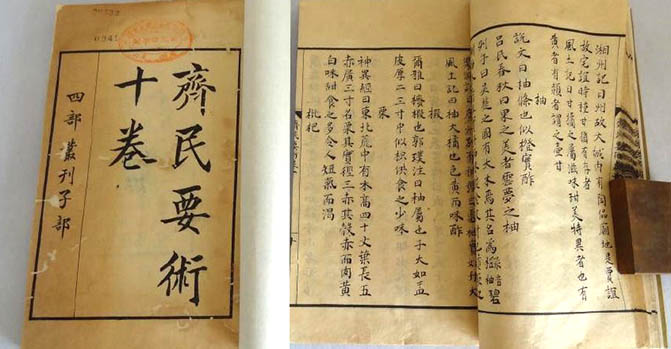 齊民要術
十卷
四部叢刊子部
湘州記曰州故大城內有陶侃廟地是賈誼
故宅誼時種甘猶有存者
風土記曰甘橘之屬滋味甜美特異者也有
黃者有赬者謂之壺甘
柚
說文曰柚條也似橙實酢
呂氏春秋曰果之美者雲夢之柚
列子曰吳越之國有大木焉其名爲櫾音柚碧
風土記曰柚大橘也色黃而味酢
椵
爾雅曰櫠椵也郭璞注曰柚屬也子大如盂
皮厚二三寸中似枳供食之少味
栗
神異經曰東北荒中有木高四十丈葉長五
赤廣三寸名栗其實徑三赤其殼赤而肉黃
白味甜食之多令人短氣而渴
枇杷